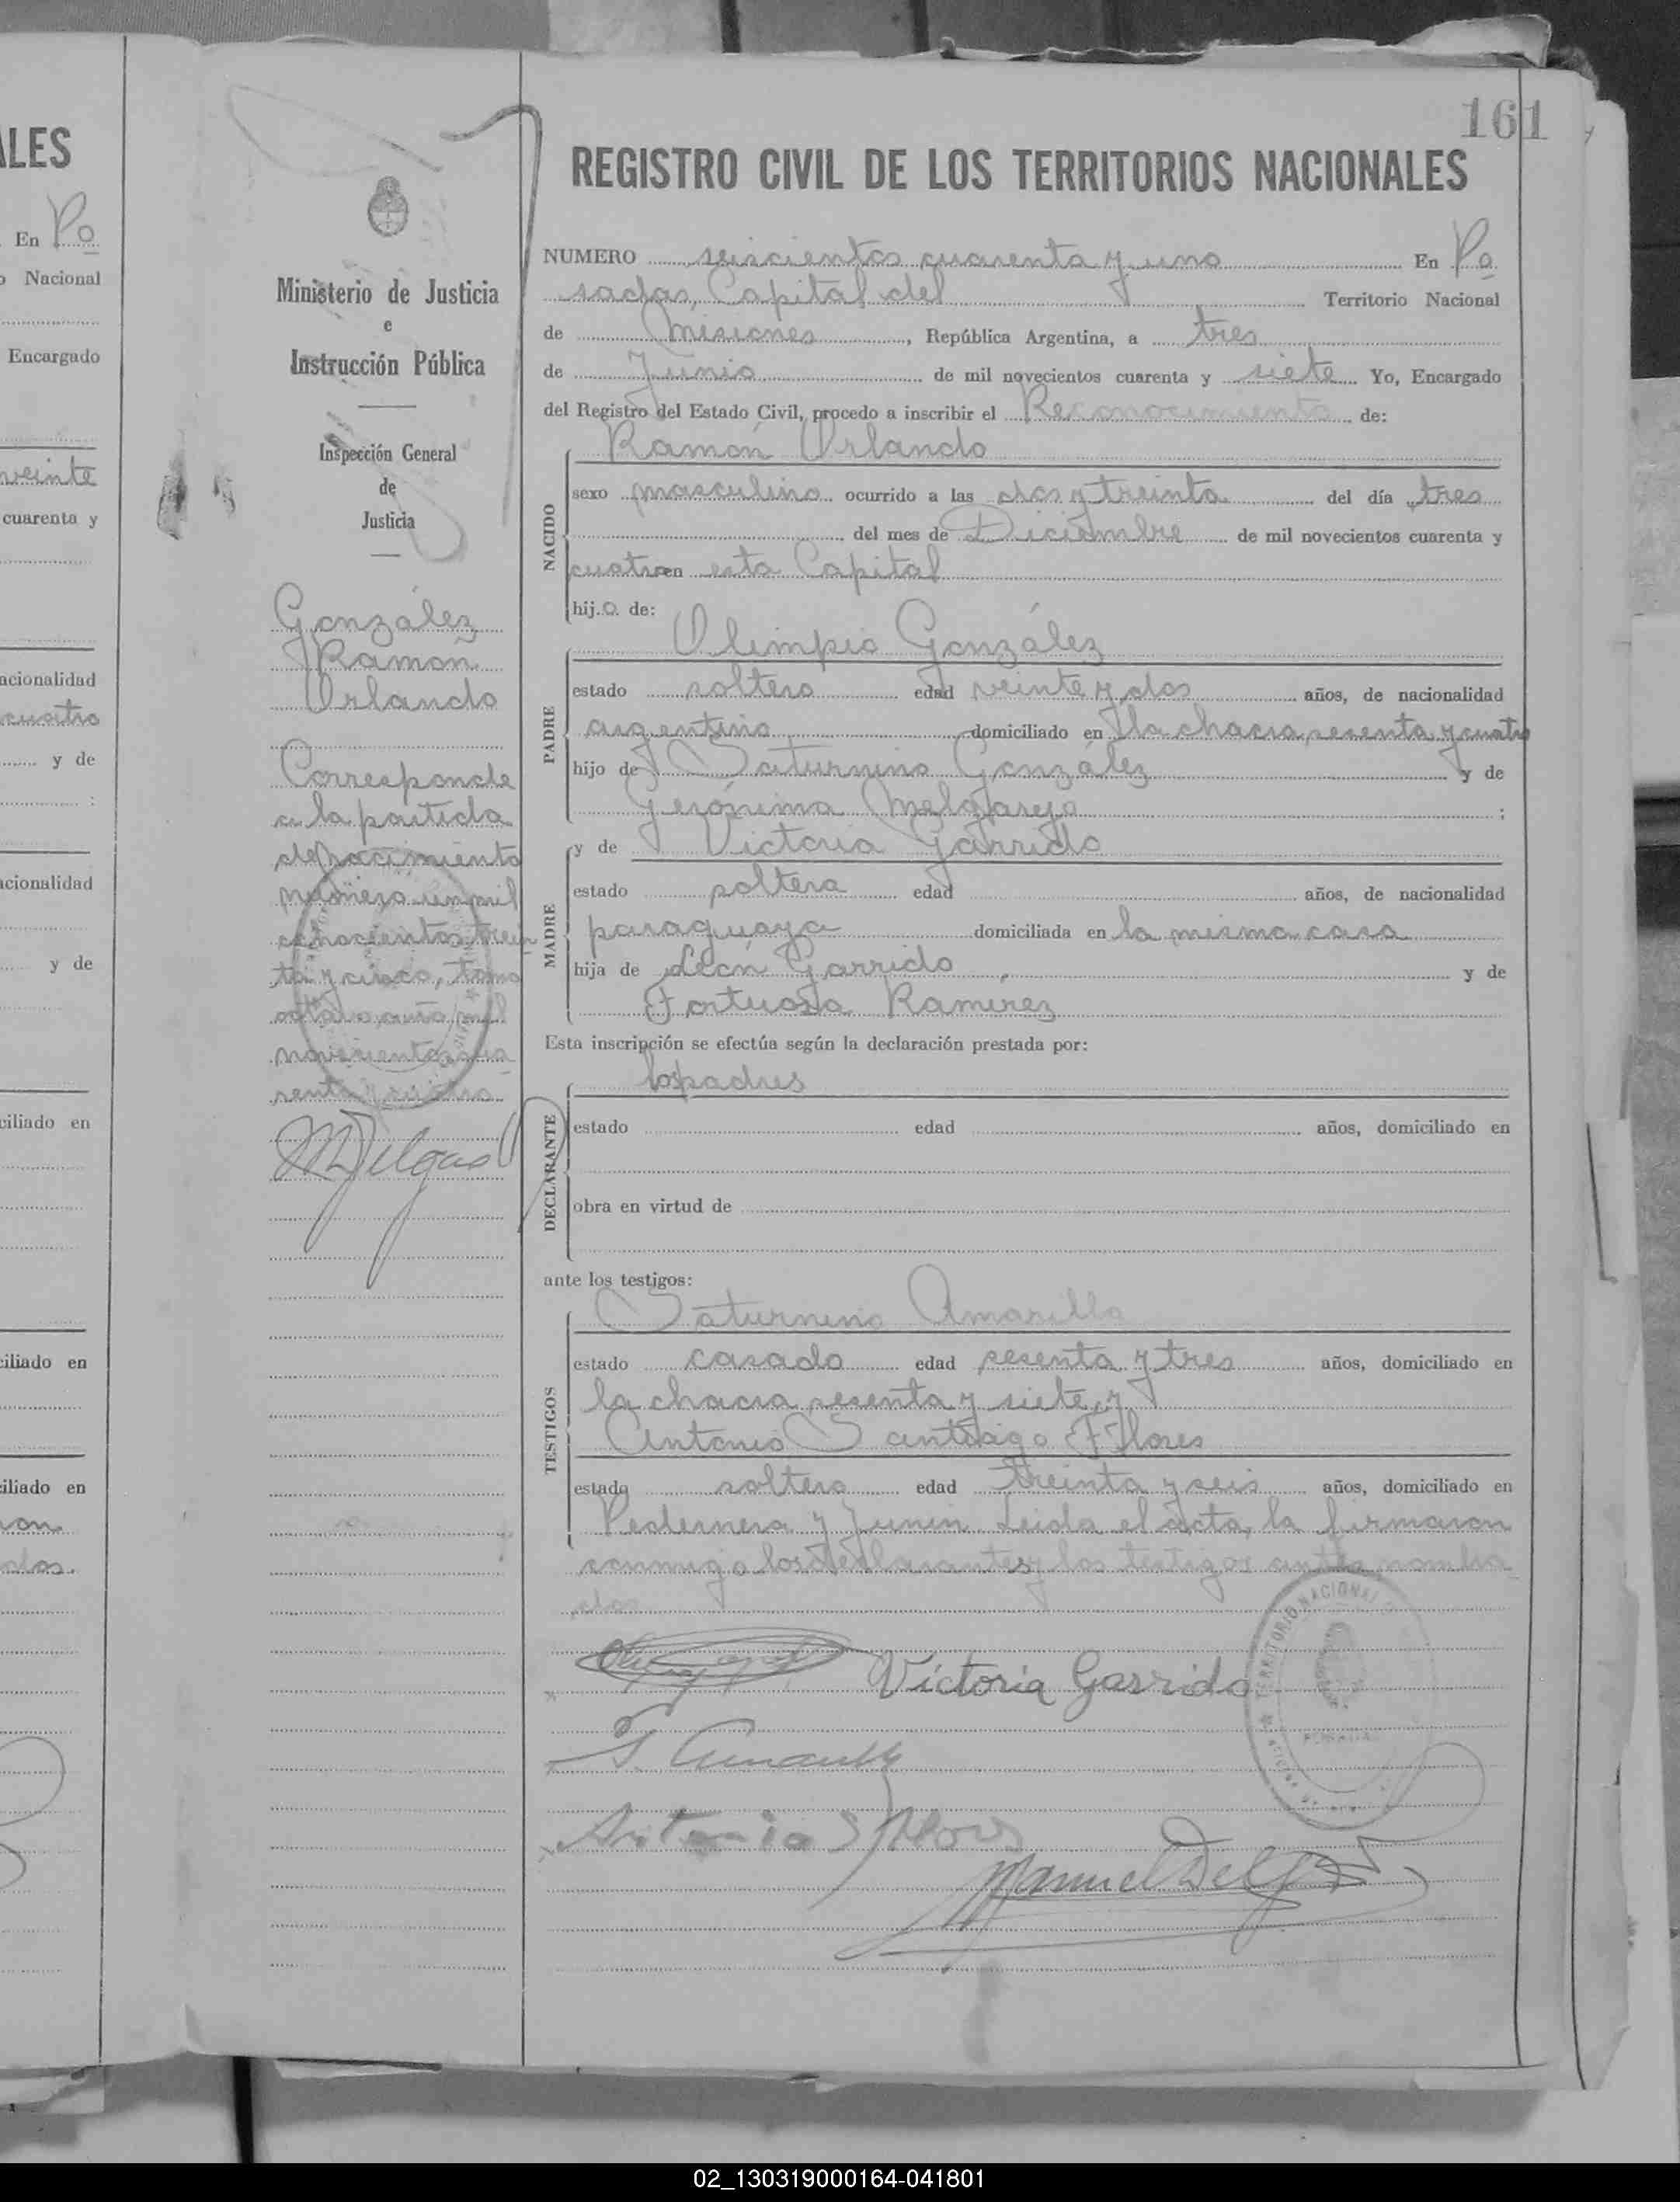 ALES
En Po
o Nacional
Encargado
veinte
cuarenta y
acionalidad
cuatro
y de
;
acionalidad
y de
ciliado en
ciliado en
iliado en
dos.
161
REGISTRO CIVIL DE LOS TERRITORIOS NACIONALES
Ministerio de Justicia
e
Instrucción Pública
Inspección General
de
Justicia
González
Ramón
Orlando
Corresponde
a la partida
de nacimiento
número un mil
ochocientos trein
ta y cinco, tomo
octavo año mil
novecientos cua
renta y cuatro.
MDelgado
NUMERO seiscientos cuarenta y uno En Po
sadas, Capital del Territorio Nacional
de Misiones, República Argentina, a tres
de Junio de mil novecientos cuarenta y siete Yo, Encargado
del Registro del Estado Civil, procedo a inscribir el Reconocimiento de:
NACIDO
Ramón Orlando
sexo masculino ocurrido a las dos y treinta del día tres
del mes de Diciembre de mil novecientos cuarenta y
cuatro en esta Capital
hijo de:
PADRE
Olimpio González
estado soltero edad veinte y dos años, de nacionalidad
argentino domiciliado en la chacra sesenta y cuatro
hijo de Saturnino González y de
Gerónima Melgarejo ;
MADRE
y de Victoria Garrido
estado soltera edad años, de nacionalidad
paraguaya domiciliada en la misma casa
hija de León Garrido, y de
Fortuosa Ramírez
Esta inscripción se efectúa según la declaración prestada por:
DECLARANTE
los padres
estado edad años, domiciliado en
obra en virtud de
ante los testigos:
TESTIGOS
Saturnino Amarilla
estado casado edad sesenta y tres años, domiciliado en
la chacra sesenta y siete, y
Antonio Santiago Flores
estado soltero edad treinta y seis años, domiciliado en
Pedernera y Junin Leida el acta, la firmaron
conmigo los declarantes y los testigos antes nombra
dos
Victoria Garrido
S. Amarilla
Antonio S Flores
Manuel Delgado
TERRITORIO NACIONAL
POSADAS
02_130319000164-041801